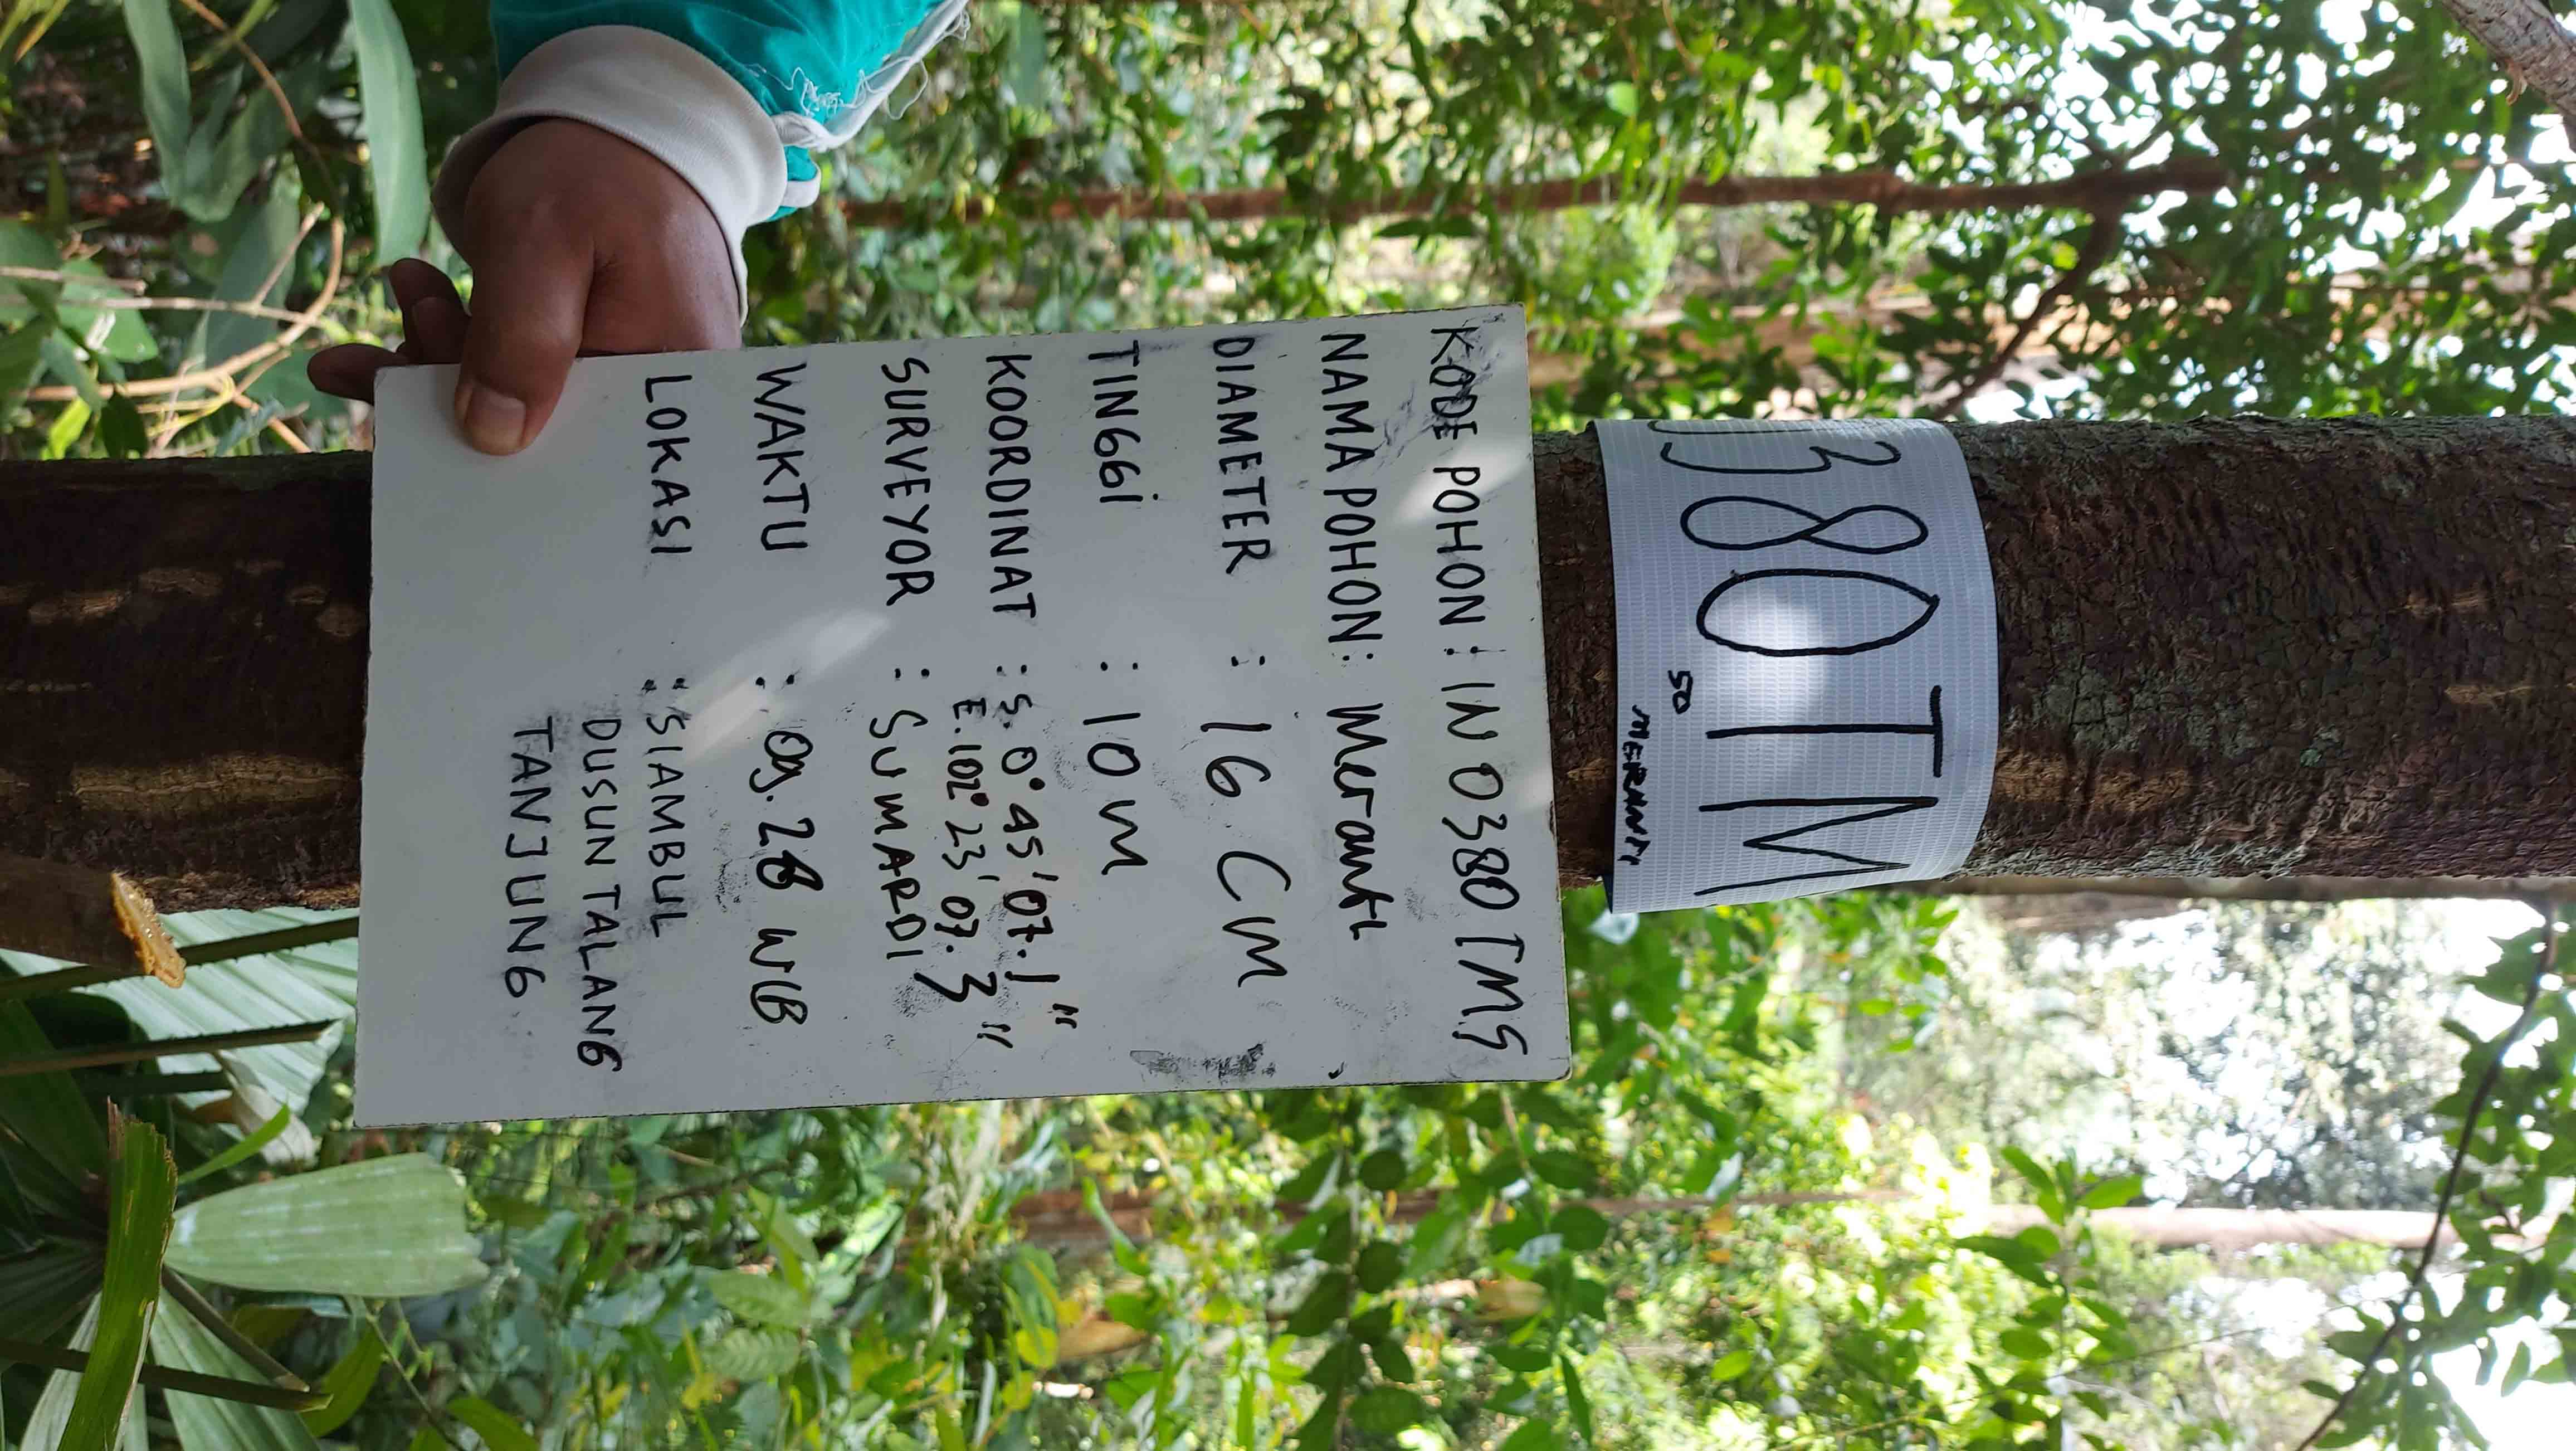 380TM
50
MERANTI
KODE POHON : IN 0380 TMS
NAMA POHON : Meranti
DIAMETER : 16 Cm
TINGGi : 10 m
KOORDINAT : S. 0° 45' 07.1"
E. 102° 23' 07.3"
SURVEYOR : SUMARDI
WAKTU : 09.28 WIB
LOKASI : SIAMBUL
DUSUN TALANG
TANJUNG